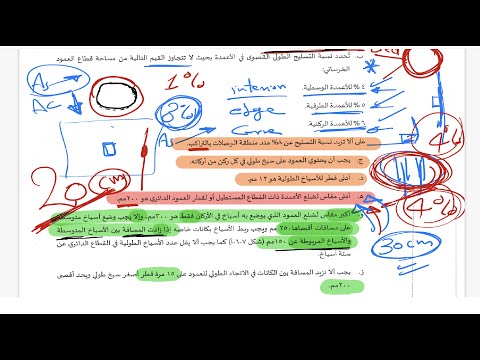 ب. تُحدد نسبة التسليح الطولي القصوى في الأعمدة بحيث لا تتجاوز القيم التالية من مساحة قطاع العمود
الخرساني:
٤ % للأعمدة الوسطية.
٥ % للأعمدة الطرفية.
٦ % للأعمدة الركنية.
على ألا تزيد نسبة التسليح عن ٨% عند منطقة الوصلات بالتراكب.
ج. يجب أن يحتوي العمود على سيخ طولي في كل ركن من أركانه.
د. أدنى قطر للأسياخ الطولية هو ١٢ مم.
هـ. أدنى مقاس لضلع الأعمدة ذات القطاع المستطيل أو لقطر العمود الدائري هو ٢٠٠مم.
و. أكبر مقاس لضلع العمود الذي يوضع به أسياخ في الأركان فقط هو ٣٠٠مم، وإلا يجب وضع أسياخ متوسطة
على مسافات أقصاها ٢٥٠ مم ويجب ربط الأسياخ بكانات خاصة إذا زادت المسافة بين الأسياخ المتوسطة
والأسياخ المربوطة عن ١٥٠مم (شكل ٧-٦-أ) كما يجب ألا يقل عدد الأسياخ الطولية في القطاع الدائري عن
ستة أسياخ.
ز. يجب ألا تزيد المسافة بين الكانات في الاتجاه الطولي للعمود على ١٥ مرة قطر أصغر سيخ طولي وبحد أقصى
٢٠٠مم.
As
Ac
1%
8%
As
interior
edge
20 cm
4%
4%
30cm